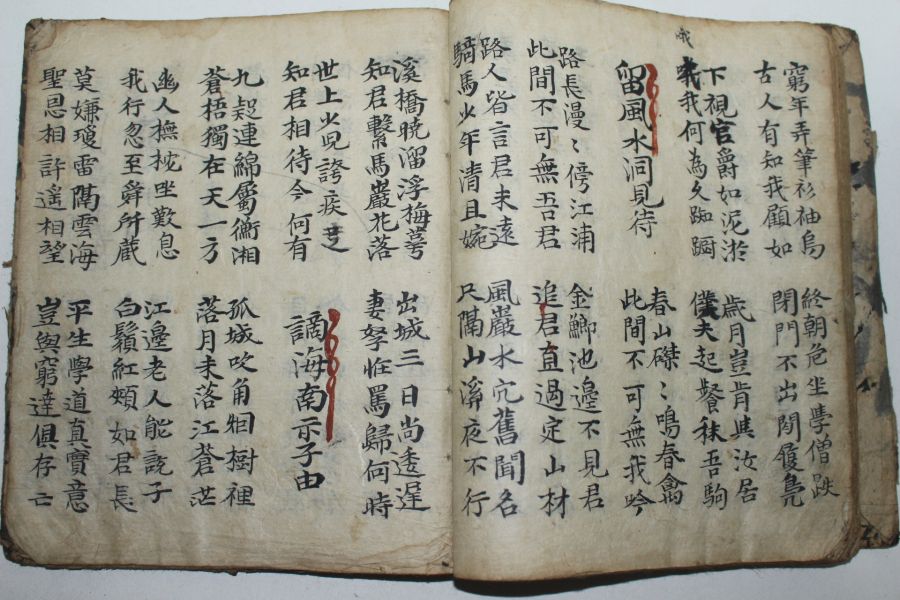 哦
窮年弄筆衫袖烏
古人有知我顧如
終朝危坐學僧趺
閉門不出閒履鳧
下視官爵如泥淤
我我何為久踟躕
歲月豈肯與汝居
僕夫起餐秣吾駒
留風水洞見待
春山磔〻鳴春禽
此間不可無我吟
路長漫〻傍江浦
此間不可無吾君
金鯽池邊不見君
追君直過定山材
路人皆言君未遠
騎馬少年清且婉
風巖水穴舊聞名
尺隔山溪夜不行
溪橋曉溜浮梅萼
知君繫馬巖花落
出城三日尚逶遲
妻孥怪罵歸何時
世上少児誇疾走
知君相待今何有
謫海南示子由
九疑連綿屬衡湘
蒼梧獨在天一方
孤城吹角烟樹裡
落月未落江蒼茫
幽人撫枕坐歎息
我行忽至舜所藏
江邊老人能說子
白鬚紅頰如君長
莫嫌瓊雷隔雲海
聖恩相許遙相望
平生學道真實意
豈與窮達俱存亡